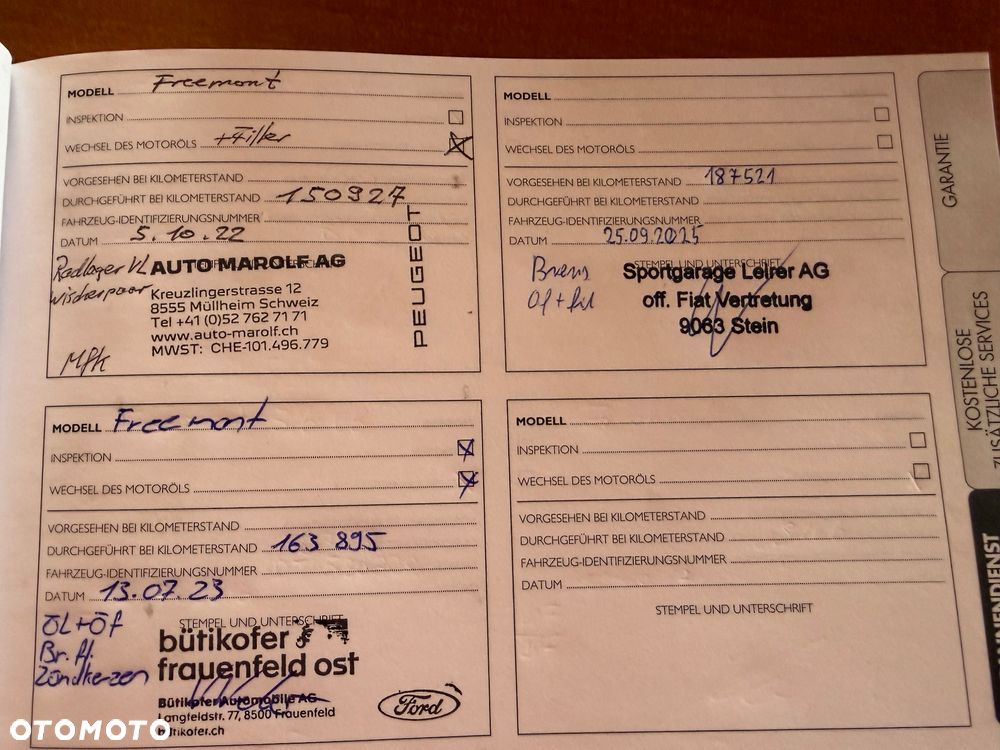 MODELL Freemont
INSPEKTION
WECHSEL DES MOTORÖLS +Filter
VORGESEHEN BEI KILOMETERSTAND
DURCHGEFÜHRT BEI KILOMETERSTAND 150927
FAHRZEUG-IDENTIFIZIERUNGSNUMMER
DATUM 5.10.22
Radlager VL
Wischerpaar
Mfk
AUTO MAROLF AG
Kreuzlingerstrasse 12
8555 Müllheim Schweiz
Tel +41 (0)52 762 71 71
www.auto-marolf.ch
MWST: CHE-101.496.779
PEUGEOT
MODELL
INSPEKTION
WECHSEL DES MOTORÖLS
VORGESEHEN BEI KILOMETERSTAND 187521
DURCHGEFÜHRT BEI KILOMETERSTAND
FAHRZEUG-IDENTIFIZIERUNGSNUMMER
DATUM 25.09.2025
STEMPEL UND UNTERSCHRIFT
Brems
Öl + fil
Sportgarage Leirer AG
off. Fiat Vertretung
9063 Stein
MODELL Freemont
INSPEKTION
WECHSEL DES MOTORÖLS
VORGESEHEN BEI KILOMETERSTAND
DURCHGEFÜHRT BEI KILOMETERSTAND 163 895
FAHRZEUG-IDENTIFIZIERUNGSNUMMER
DATUM 13.07.23
STEMPEL UND UNTERSCHRIFT
ÖL+Öf
Br. fl.
Zündkerzen
bütikofer
frauenfeld ost
Bütikofer Automobile AG
Langfeldstr. 77, 8500 Frauenfeld
bütikofer.ch
Ford
MODELL
INSPEKTION
WECHSEL DES MOTORÖLS
VORGESEHEN BEI KILOMETERSTAND
DURCHGEFÜHRT BEI KILOMETERSTAND
FAHRZEUG-IDENTIFIZIERUNGSNUMMER
DATUM
STEMPEL UND UNTERSCHRIFT
GARANTIE
KOSTENLOSE
ZUSÄTZLICHE SERVICES
OTOMOTO